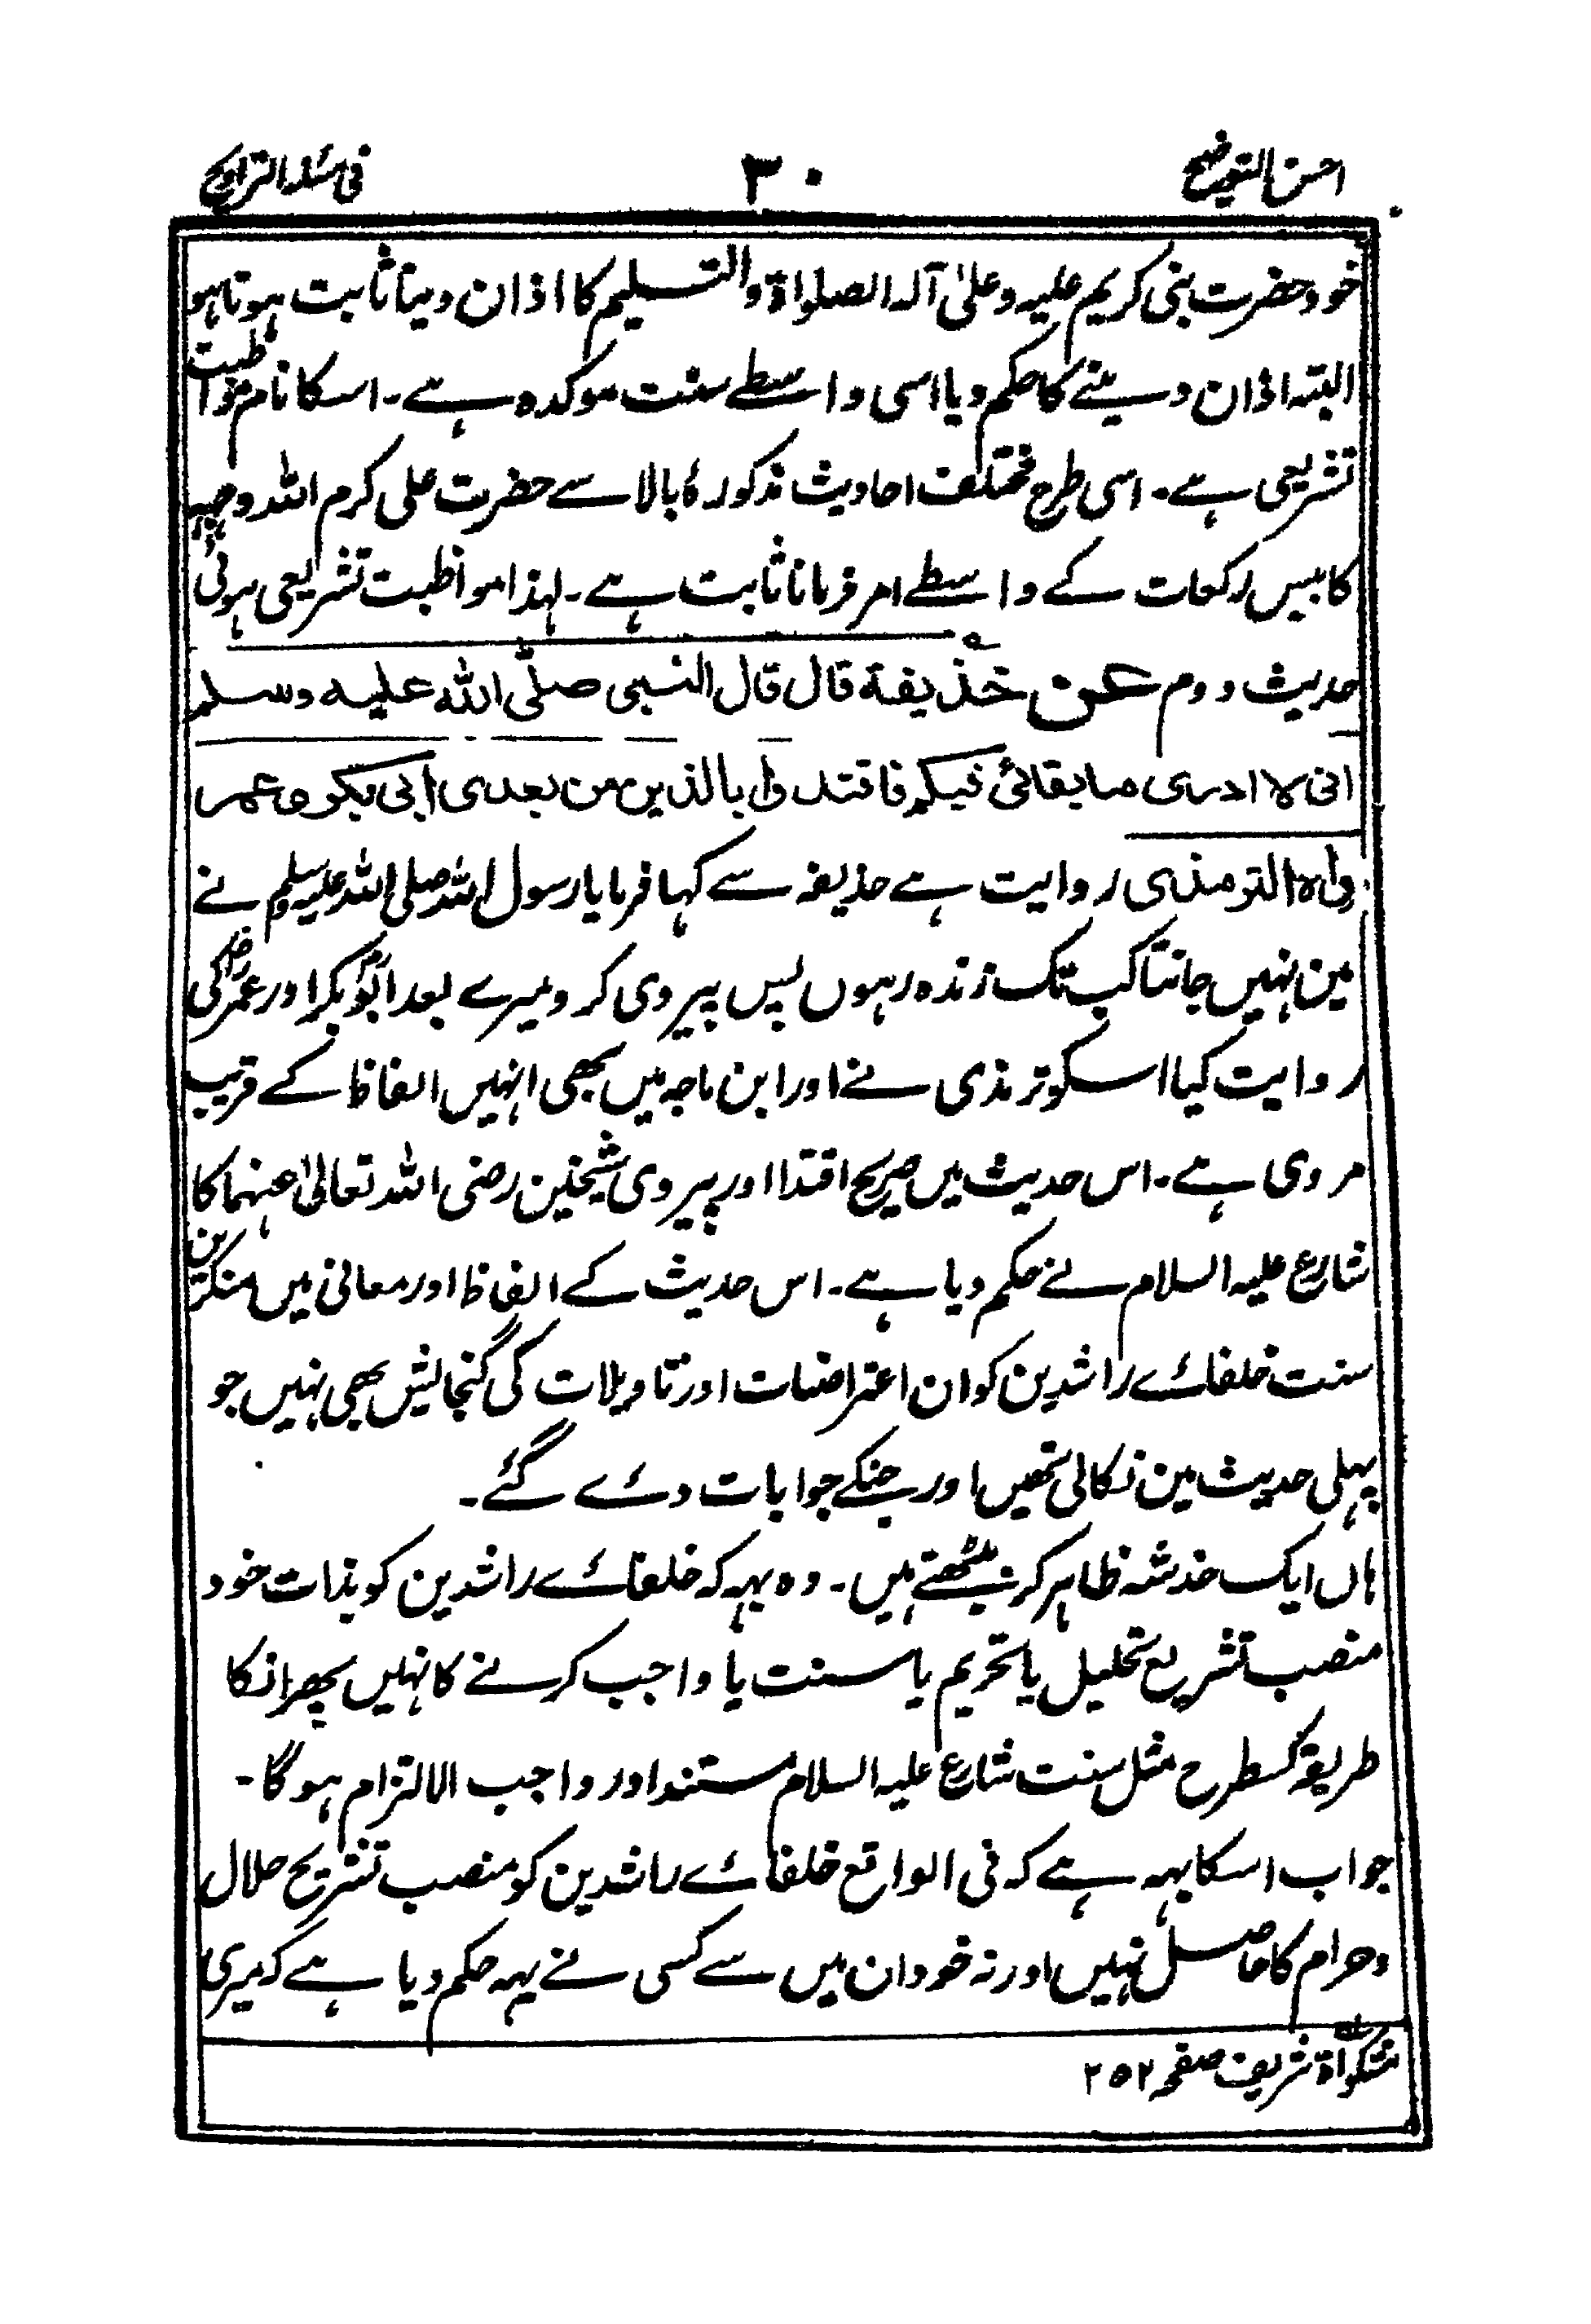 احسن التوضیح ۳۰ فی مسئلۃ التراویح
خود حضرت نبی کریم علیہ وعلیٰ آلہ الصلواۃ والتسلیم کا اذان دینا ثابت ہوتا ہو
البتہ اذان دینے کا حکم دیا اسی واسطے سنت موکدہ ہے۔ اسکا نام مواظبت
تشریعی ہے۔ اسی طرح مختلف احادیث مذکورۂ بالا سے حضرت علی کرم اللہ وجہہ
کا بیس رکعات کے واسطے امر فرمانا ثابت ہے۔ لہذا مواظبت تشریعی ہوئی
حدیث دوم عن حذیفۃ قال قال النبی صلّی اللہ علیہ وسلم
انی لا ادری ما بقائی فیکم فاقتدوا بالذین من بعدی ابی بکر و عمر
رواہ الترمذی روایت ہے حذیفہ سے کہا فرمایا رسول اللہ صلی اللہ علیہ وسلم نے
مین نہیں جانتا کب تک زندہ رہوں پس پیروی کرو میرے بعد ابوبکر اور عمر رض کی
روایت کیا اسکو ترمذی نے اور ابن ماجہ میں بھی انہیں الفاظ کے قریب
مروی ہے۔ اس حدیث میں صریح اقتدا اور پیروی شیخین رضی اللہ تعالیٰ عنہما کا
شارع علیہ السلام نے حکم دیا ہے۔ اس حدیث کے الفاظ اور معانی میں منکرین
سنت خلفائے راشدین کو ان اعتراضات اور تاویلات کی گنجائش بھی نہیں جو
پہلی حدیث مین نکالی تھیں اور جنکے جوابات دئے گئے۔
ہاں ایک خدشہ ظاہر کر بیٹھتے ہیں۔ وہ یہہ کہ خلفائے راشدین کو بذات خود
منصب تشریع تحلیل یا تحریم یا سنت یا واجب کرنے کا نہیں پھر انکا
طریقہ کسطرح مثل سنت شارع علیہ السلام مستند اور واجب الالتزام ہوگا۔
جواب اسکا یہہ ہے کہ فی الواقع خلفائے راشدین کو منصب تشریح حلال
وحرام کا حاصل نہیں اور نہ خود ان میں سے کسی نے یہہ حکم دیا ہے کہ میری
مشکواۃ شریف صفحہ ۲۵۲